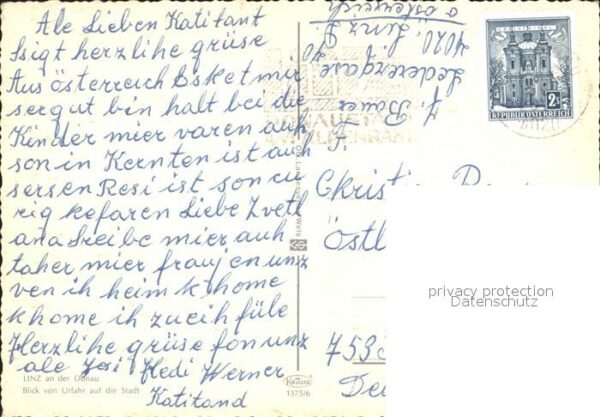 Ale Lieben Katitant
Ssigt herzlihe grüse
Aus österreich Esket mir
ser gut bin halt bei die
Kinder mier varen auh
son in Kernten ist auh
sersen Resi ist son cu
rig kefaren Liebe Zvetl
ana sreibe mier auh
taher mier fraujen unz
ven ih heim k home
k home ih zueih füle
Herzlihe grüse fon unz
ale Josi Hedi Werner
Katitand
LINZ an der Donau
Blick von Urfahr auf die Stadt
KRÜGER
1375/6
J. Bauer
Lederergase
4020 Linz
a österreich
2S
REPUBLIK ÖSTERREICH
DONAUSTADT
A-4020
Christi
Östl
753
De
privacy protection
Datenschutz